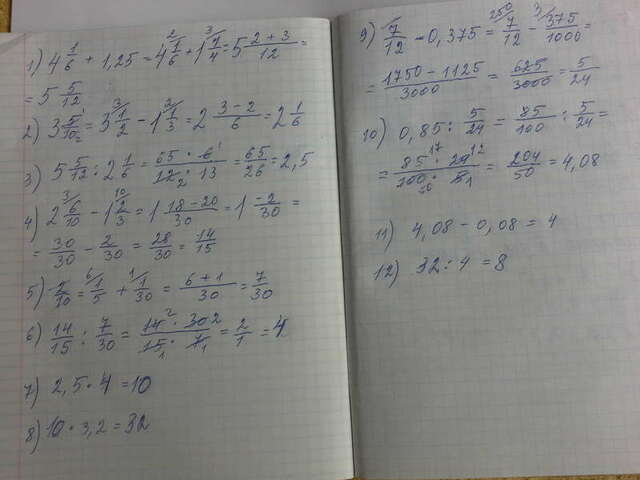 1) 4 1/6 + 1,25 = 4 1/6 (2) + 1 1/4 (3) = 5 (2+3)/12 =
= 5 5/12
2) 3 5/10 = 3 1/2 (3) - 1 1/3 = 2 (3-2)/6 = 2 1/6
3) 5 5/12 : 2 1/6 = (65 · 6)/(12 · 13) = 65/26 = 2,5
4) 2 6/10 (3) - 1 2/3 (10) = 1 (18-20)/30 = 1 (-2)/30 =
= 30/30 - 2/30 = 28/30 = 14/15
5) 2/10 = 1/5 (6) + 1/30 (1) = (6+1)/30 = 7/30
6) 14/15 : 7/30 = (14 · 30)/(15 · 7) = 2/1 = 4
7) 2,5 · 4 = 10
8) 10 · 3,2 = 32
9) 7/12 - 0,375 = 7/12 (250) - 375/1000 (3) =
= (1750 - 1125)/3000 = 625/3000 = 5/24
10) 0,85 : 5/24 = 85/100 : 5/24 =
= (85 · 24)/(100 · 5) = 204/50 = 4,08
11) 4,08 - 0,08 = 4
12) 32 : 4 = 8